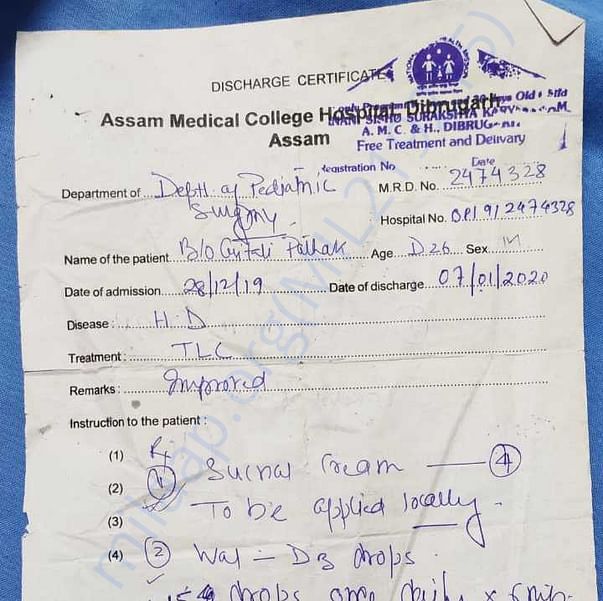 DISCHARGE CERTIFICATE
Assam Medical College Hospital, Dibrugarh
Assam
A. M. C. & H., DIBRUGARH
Free Treatment and Delivary
Registration No
Date
Department of Deptt of Pediatric
Surgery
M.R.D. No. 2474328
Hospital No.
Name of the patient B/O Gitali Pathak Age D26 Sex M
Date of admission 28/12/19 Date of discharge 07/01/2020
Disease : H D
Treatment : TLC
Remarks : Improved
Instruction to the patient :
(1) Rx
(2) 1 Sucral Cream 4
(3) To be applied locally.
(4) 2 Wal - D3 drops
drops once daily x
milaap.org